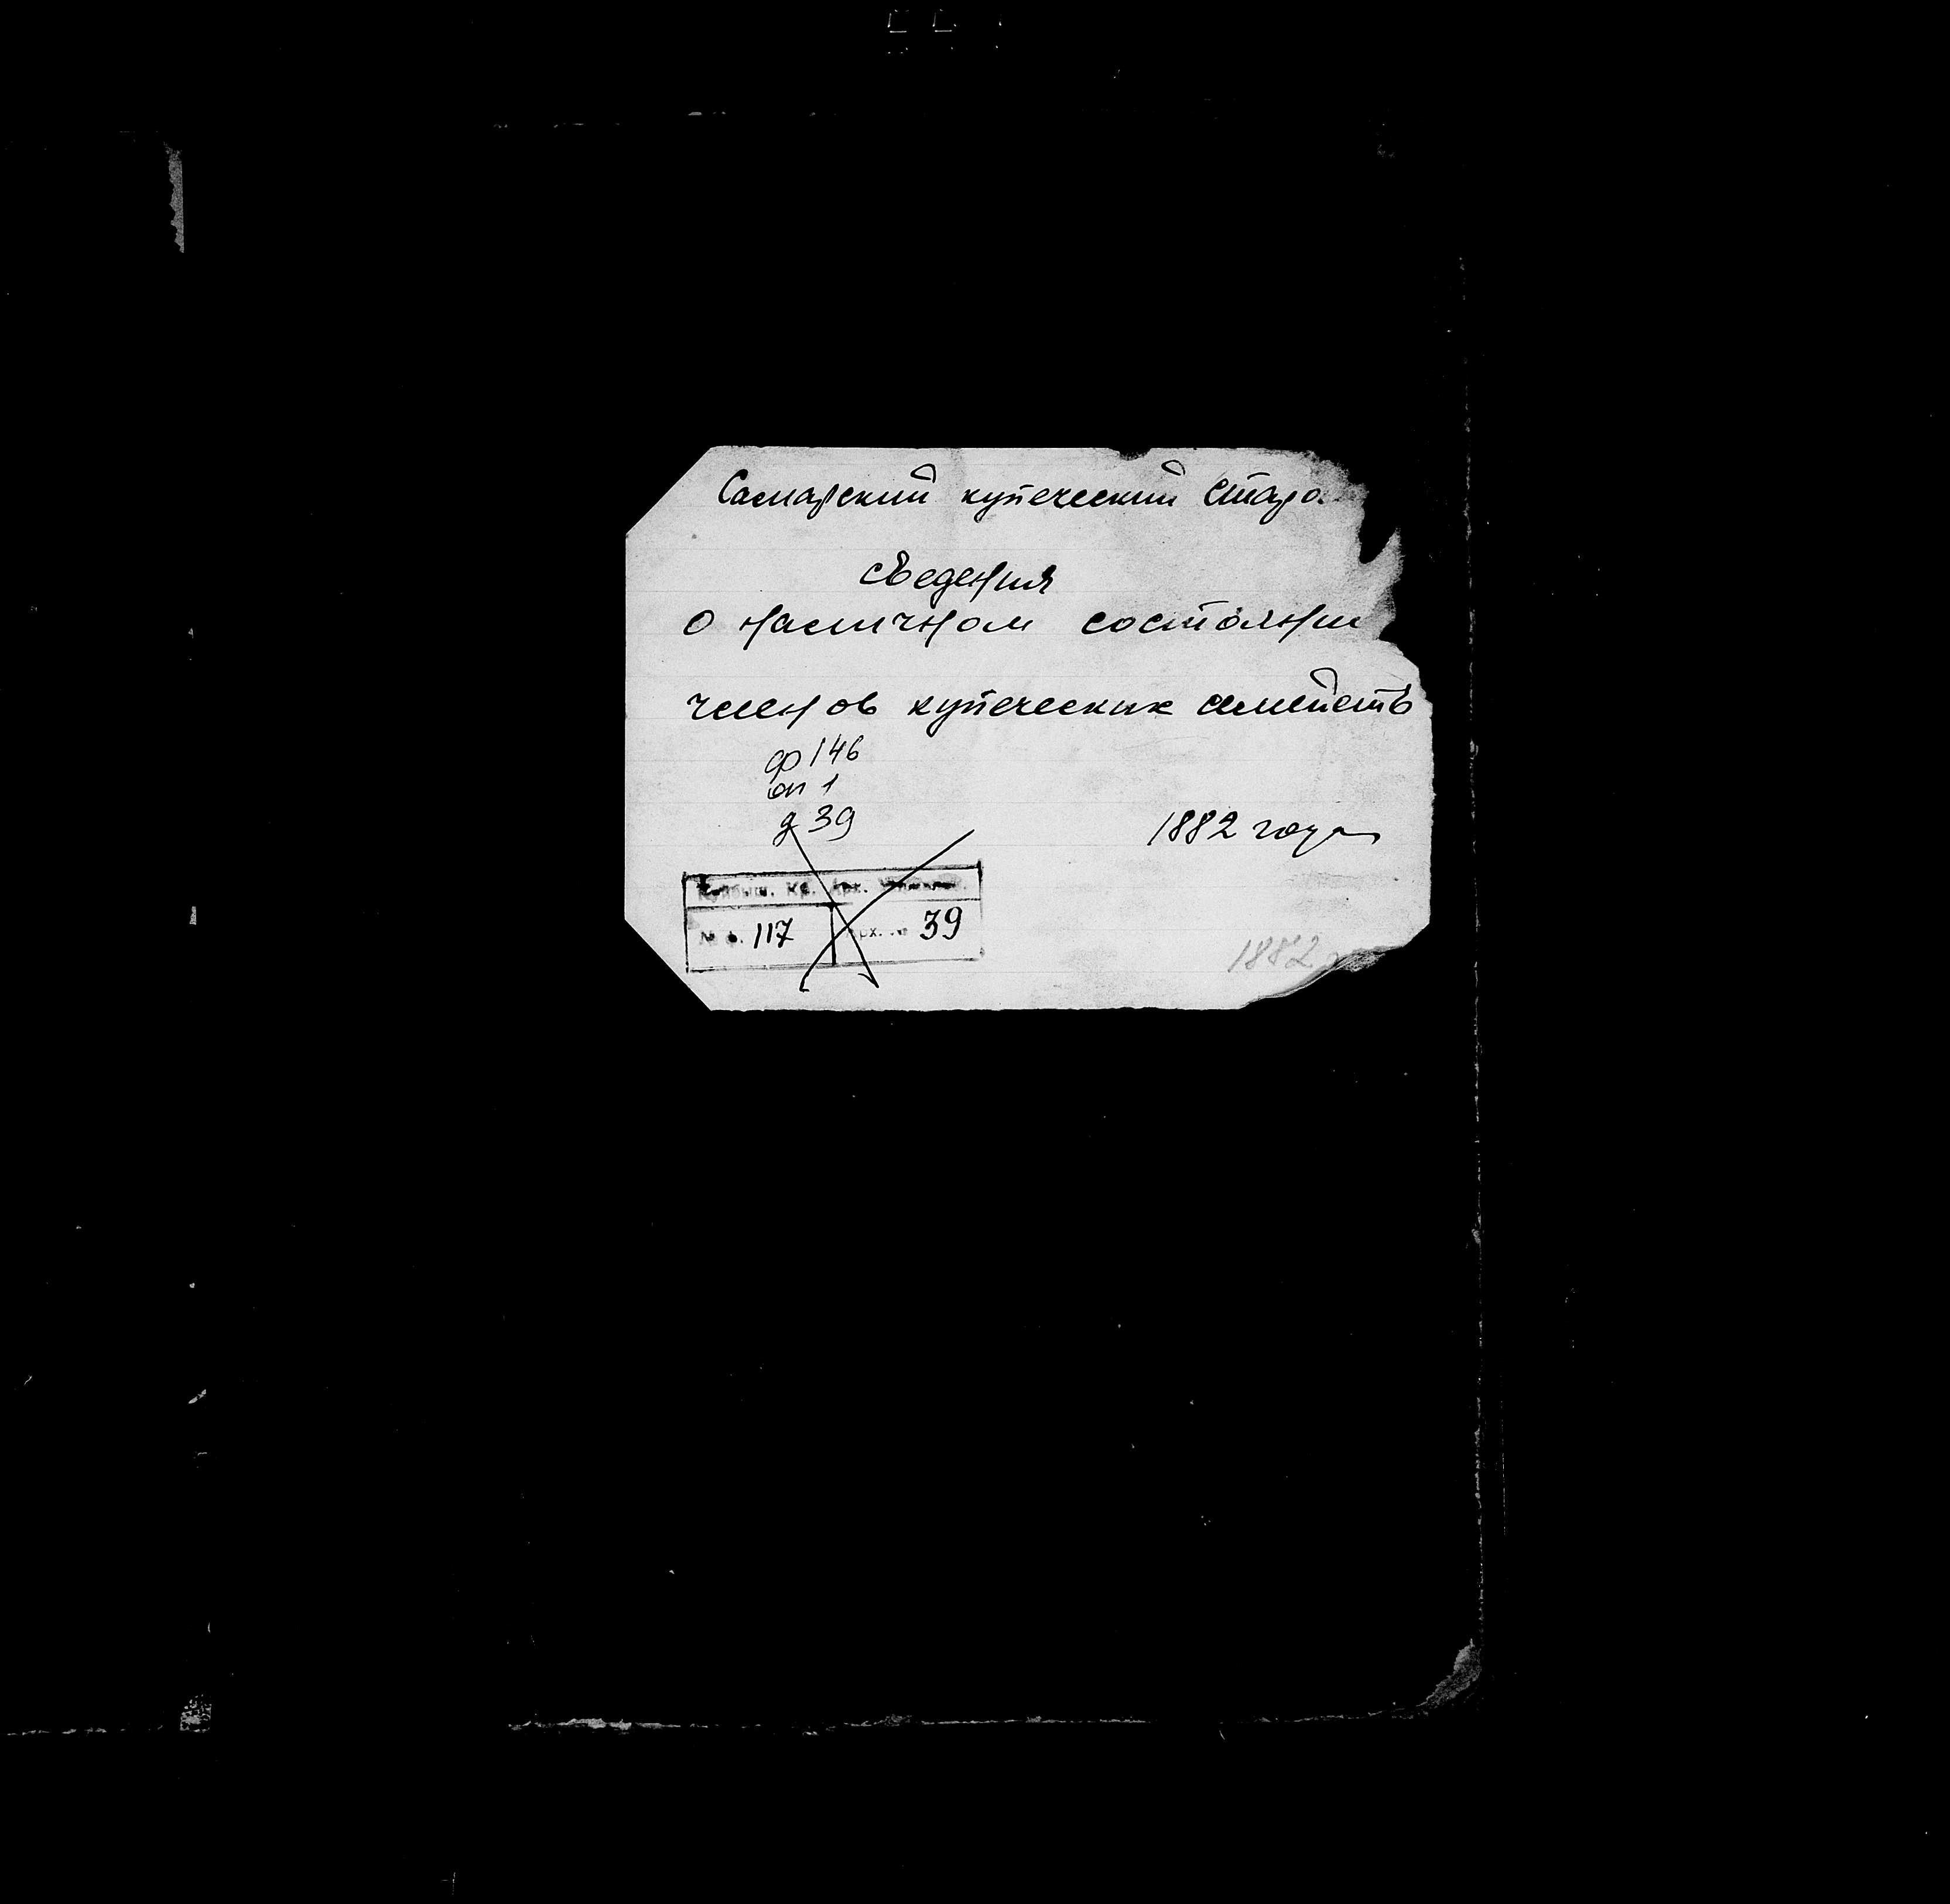 Самарский купеческий старо
сведения
о наличном состоянии
членов купеческих семейств
ф 146
оп 1
д 39
1882 года
Куйбыш. Кр. Арх. Управлен.
№ ф. 117 Арх. № 39
1882 г